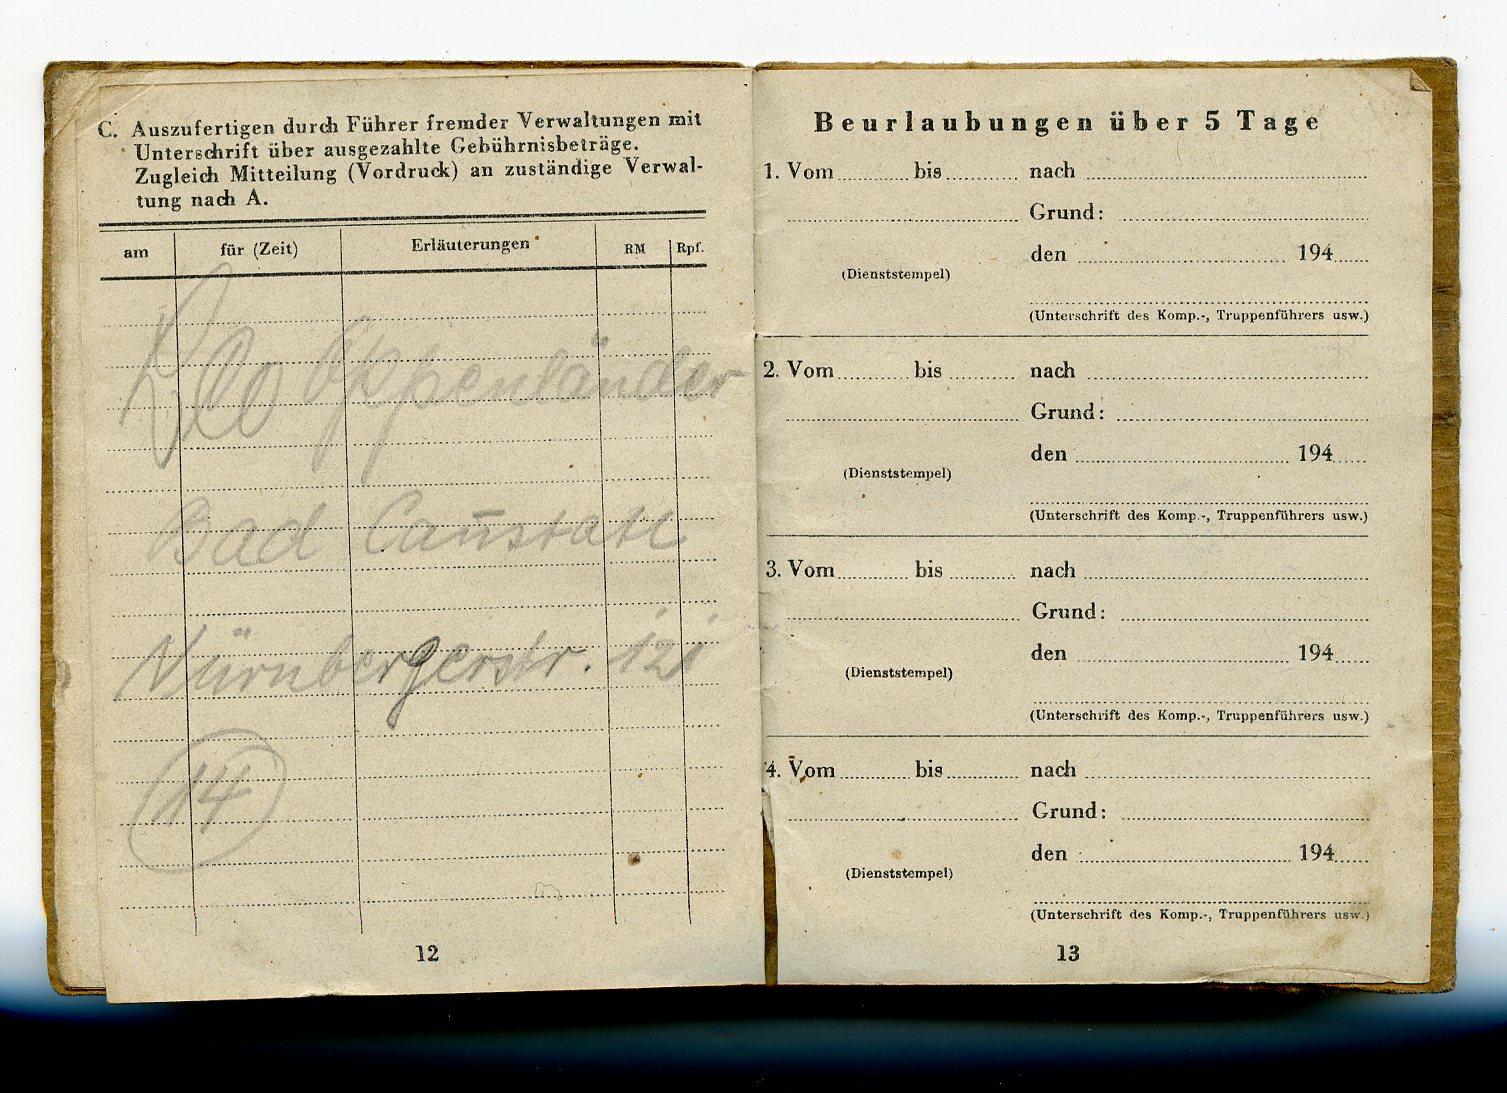 C. Auszufertigen durch Führer fremder Verwaltungen mit
Unterschrift über ausgezahlte Gebührnisbeträge.
Zugleich Mitteilung (Vordruck) an zuständige Verwal-
tung nach A.
am für (Zeit) Erläuterungen RM Rpf.
Oppenländer
Bad Cannstatt
Nürnbergerstr. 121
14
12
Beurlaubungen über 5 Tage
1. Vom bis nach
Grund:
den 194
(Dienststempel)
(Unterschrift des Komp.-, Truppenführers usw.)
2. Vom bis nach
Grund:
den 194
(Dienststempel)
(Unterschrift des Komp.-, Truppenführers usw.)
3. Vom bis nach
Grund:
den 194
(Dienststempel)
(Unterschrift des Komp.-, Truppenführers usw.)
4. Vom bis nach
Grund:
den 194
(Dienststempel)
(Unterschrift des Komp.-, Truppenführers usw.)
13